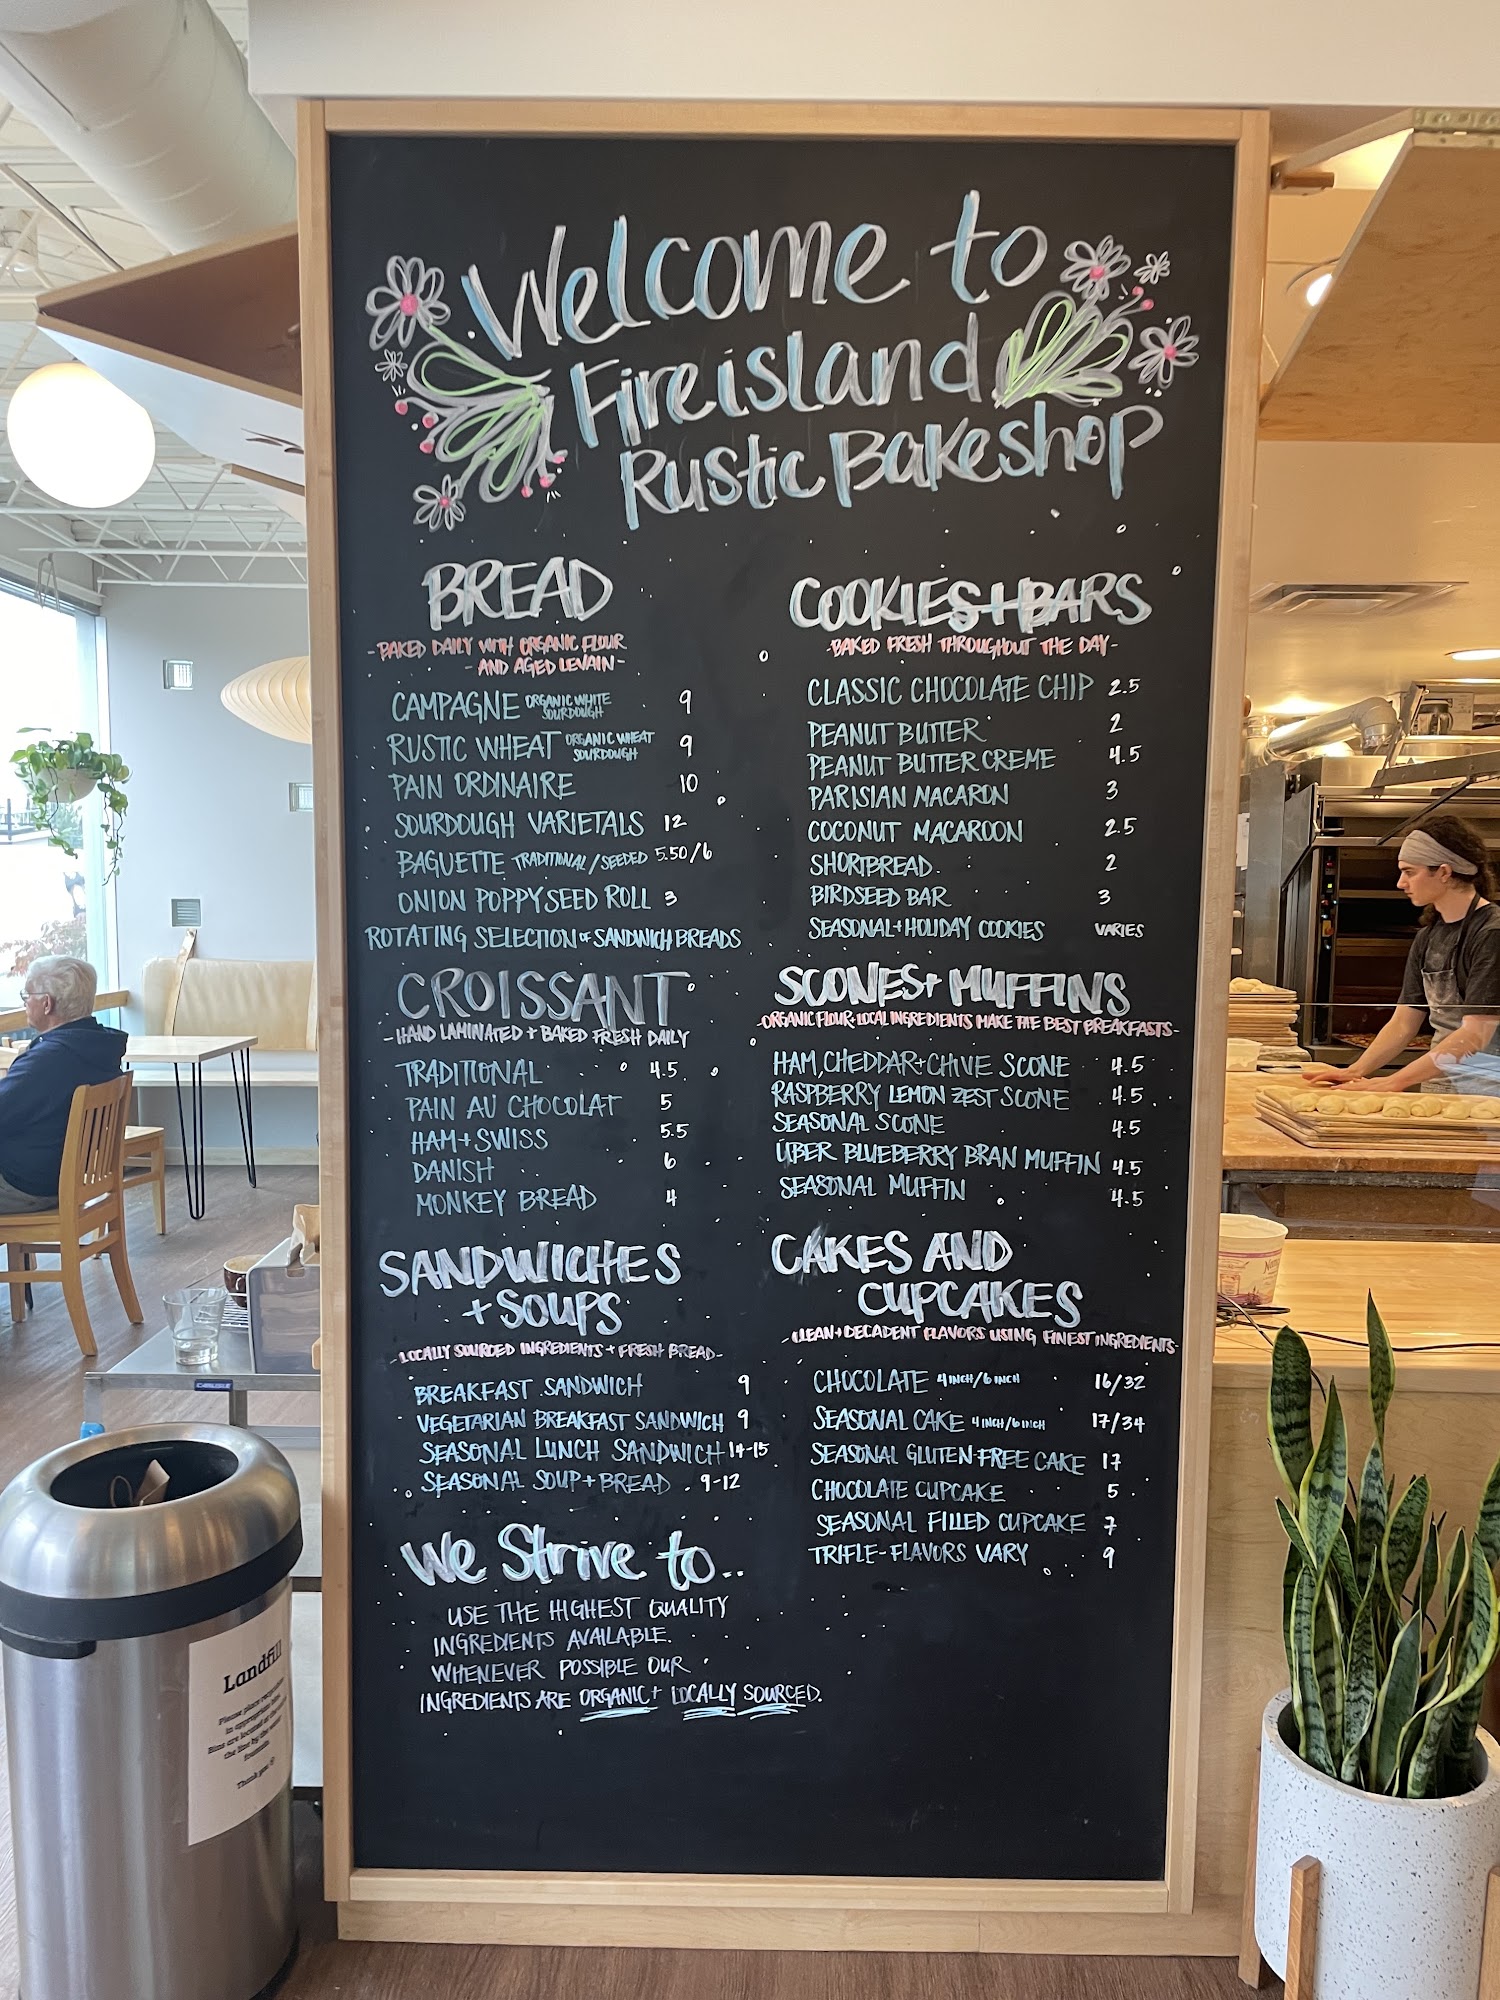 Welcome to
Fireisland
Rustic Bakeshop
BREAD
-BAKED DAILY WITH ORGANIC FLOUR
- AND AGED LEVAIN-
CAMPAGNE ORGANIC WHITE SOURDOUGH 9
RUSTIC WHEAT ORGANIC WHEAT SOURDOUGH 9
PAIN ORDINAIRE 10
SOURDOUGH VARIETALS 12
BAGUETTE TRADITIONAL/SEEDED 5.50/6
ONION POPPYSEED ROLL 3
ROTATING SELECTION OF SANDWICH BREADS
CROISSANT
-HAND LAMINATED + BAKED FRESH DAILY
TRADITIONAL 4.5
PAIN AU CHOCOLAT 5
HAM+SWISS 5.5
DANISH 6
MONKEY BREAD 4
SANDWICHES
+ SOUPS
-LOCALLY SOURCED INGREDIENTS + FRESH BREAD-
BREAKFAST SANDWICH 9
VEGETARIAN BREAKFAST SANDWICH 9
SEASONAL LUNCH SANDWICH 14-15
SEASONAL SOUP+BREAD 9-12
We Strive to..
USE THE HIGHEST QUALITY
INGREDIENTS AVAILABLE.
WHENEVER POSSIBLE OUR
INGREDIENTS ARE ORGANIC + LOCALLY SOURCED.
COOKIES+BARS
-BAKED FRESH THROUGHOUT THE DAY-
CLASSIC CHOCOLATE CHIP 2.5
PEANUT BUTTER 2
PEANUT BUTTER CREME 4.5
PARISIAN MACARON 3
COCONUT MACAROON 2.5
SHORTBREAD 2
BIRDSEED BAR 3
SEASONAL+HOLIDAY COOKIES VARIES
SCONES+ MUFFINS
-ORGANIC FLOUR+LOCAL INGREDIENTS MAKE THE BEST BREAKFASTS-
HAM,CHEDDAR+CHIVE SCONE 4.5
RASPBERRY LEMON ZEST SCONE 4.5
SEASONAL SCONE 4.5
ÜBER BLUEBERRY BRAN MUFFIN 4.5
SEASONAL MUFFIN 4.5
CAKES AND
CUPCAKES
-CLEAN+DECADENT FLAVORS USING FINEST INGREDIENTS-
CHOCOLATE 4 INCH/6 INCH 16/32
SEASONAL CAKE 4 INCH/6 INCH 17/34
SEASONAL GLUTEN-FREE CAKE 17
CHOCOLATE CUPCAKE 5
SEASONAL FILLED CUPCAKE 7
TRIFLE-FLAVORS VARY 9
Landfill
Please place recyclables
in appropriate bins.
Bins are located
the line by the water
fountain.
Thank you